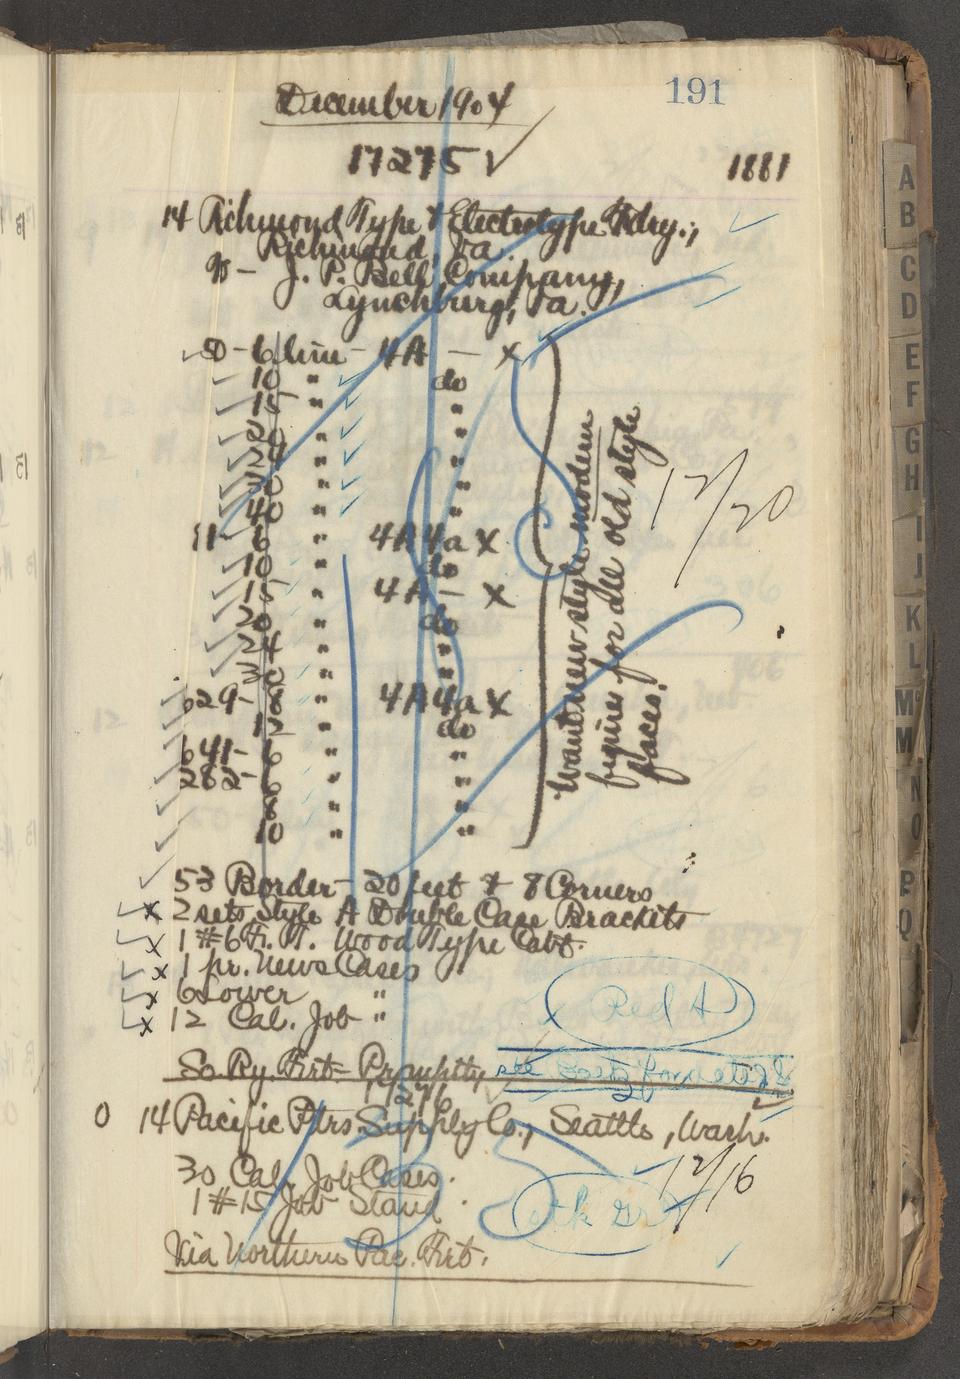 191
December 1904
17275 ✓
1881
14 Richmond Type & Electrotype Fdry.,
Richmond, Va.
J. P. Bell Company,
Lynchburg, Va.
50 - 6 line - 4A - x
10 " do
15 " "
20 " "
24 " "
30 " "
40 " "
11 - 6 " 4A 4a x
10 " do
15 " 4A - x
20 " do
24 " "
30 " "
629 - 8 " 4A 4a x
12 " do
641 - 6 " "
282 - 6 " "
8 " "
10 " "
Want new style modern
figures for all old style
faces.
12/20
53 Border - 20 feet & 8 Corners
x 2 sets Style A Double Case Brackets
x 1 #6 H. T. Wood Type Cabt.
x 1 pr. News Cases
x 6 Lower "
x 12 Cal. Job "
Red
So. Ry. Frt = Promptly,
see
17276
0 14 Pacific Ptrs. Supply Co., Seattle, Wash.
30 Cal. Job Cases.
12/16
1 #15 Job Stand.
Via Northern Pac. Frt.
A
B
C
D
E
F
G
H
I
J
K
L
Mc
M
N
O
P
Q